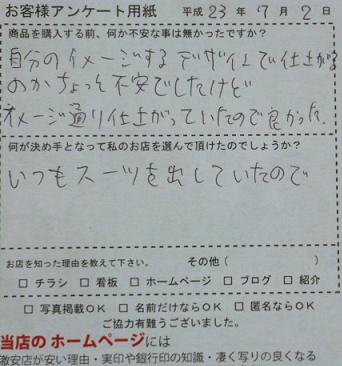 お客様アンケート用紙 平成 23 年 7 月 2 日
商品を購入する前、何か不安な事は無かったですか?
自分のイメージするデザインで仕上がる
のかちょっと不安でしたけど
イメージ通り仕上がっていたので良かった。
何が決め手となって私のお店を選んで頂けたのでしょうか?
いつもスーツを出していたので
お店を知った理由を教えて下さい。 その他( )
□ チラシ □ 看板 □ ホームページ □ ブログ □ 紹介
□ 写真掲載OK □ 名前だけならOK □ 匿名ならOK
ご協力有難うございました。
当店のホームページには
激安店が安い理由・実印や銀行印の知識・凄く写りの良くなる